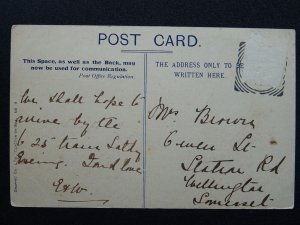 POST CARD.
This Space, as well as the Back, may
now be used for communication.
Post Office Regulation.
THE ADDRESS ONLY TO BE
WRITTEN HERE.
We shall hope to
arrive by the
6 25 train Satdy
Evening. Fond love
E&W.
Mrs Brown
Station Rd
Wellington
Somerset